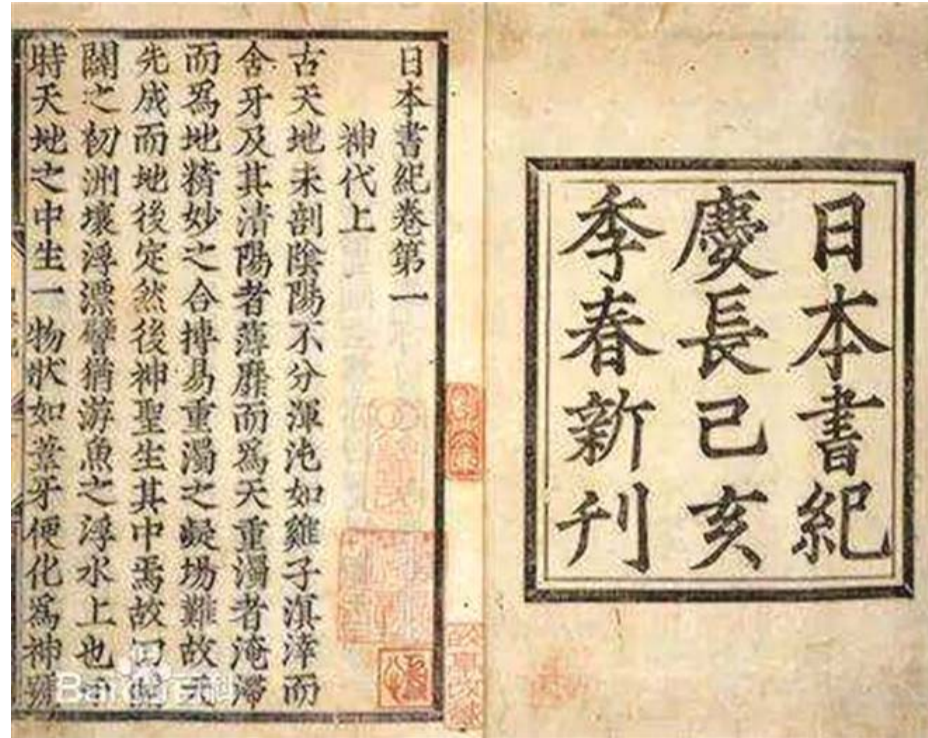 日本書紀
慶長己亥
季春新刊
日本書紀卷第一
神代上
古天地未剖陰陽不分渾沌如雞子溟涬而
含牙及其清陽者薄靡而爲天重濁者淹滯
而爲地精妙之合搏易重濁之凝場難故天
先成而地後定然後神聖生其中焉故曰開
闢之初洲壤浮漂譬猶游魚之浮水上也于
時天地之中生一物狀如葦牙便化爲神號
Bai百科